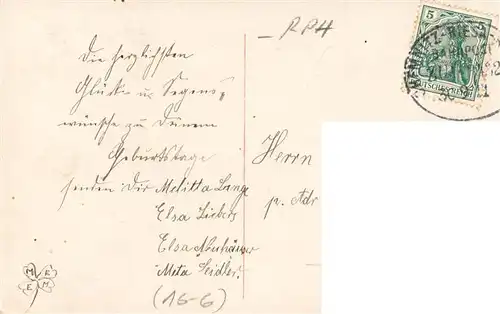 RPH
5
CHEMNITZ-RIESA
BAHNPOST
ZUG
DEUTSCHES REICH
Die herzlichsten
Glück u. Segens-
wünsche zu Deinem
Geburtstage
senden Dir Melitta Lange
Elsa
Elsa
Meta Seidler.
Herrn
p. Adr
M E
E M
(16-6)